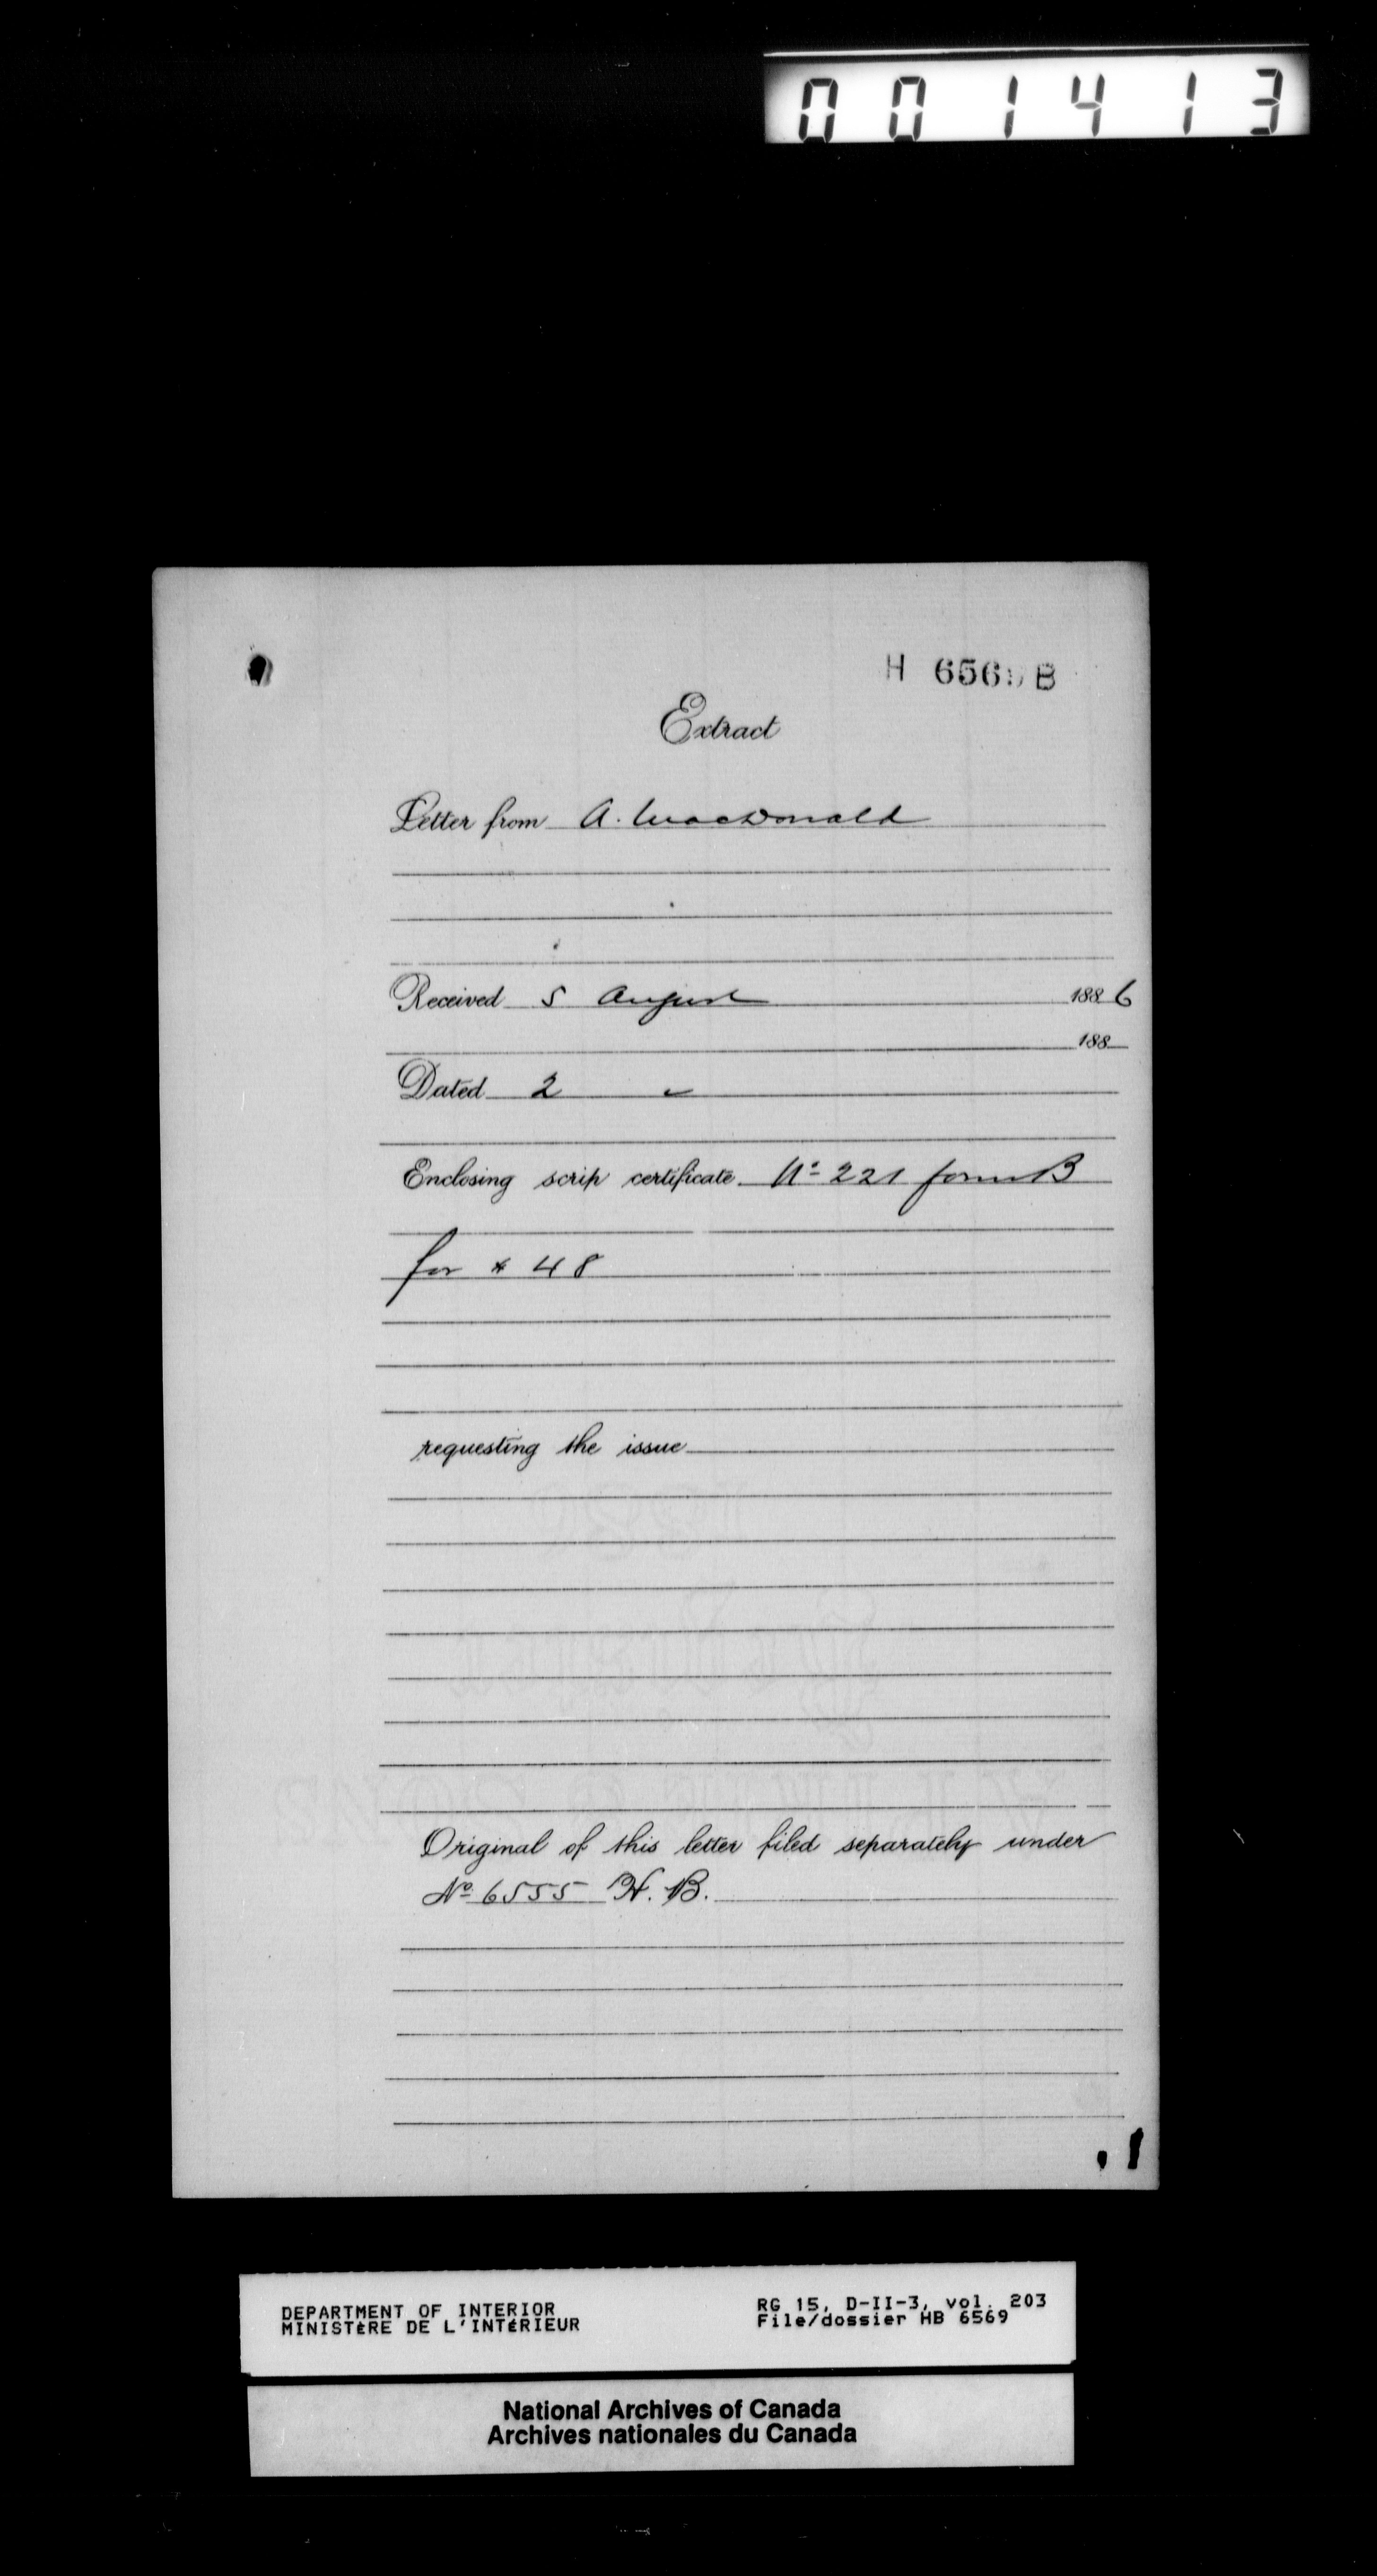 001413
H 6569 B
Extract
Letter from A. MacDonald
Received 5 August 1886
188
Dated 2 "
Enclosing scrip certificate No 221 form B
for $ 48
requesting the issue
Original of this letter filed separately under
No 6555 H. B.
DEPARTMENT OF INTERIOR
MINISTÈRE DE L'INTÉRIEUR
RG 15, D-II-3, vol. 203
File/dossier HB 6569
National Archives of Canada
Archives nationales du Canada